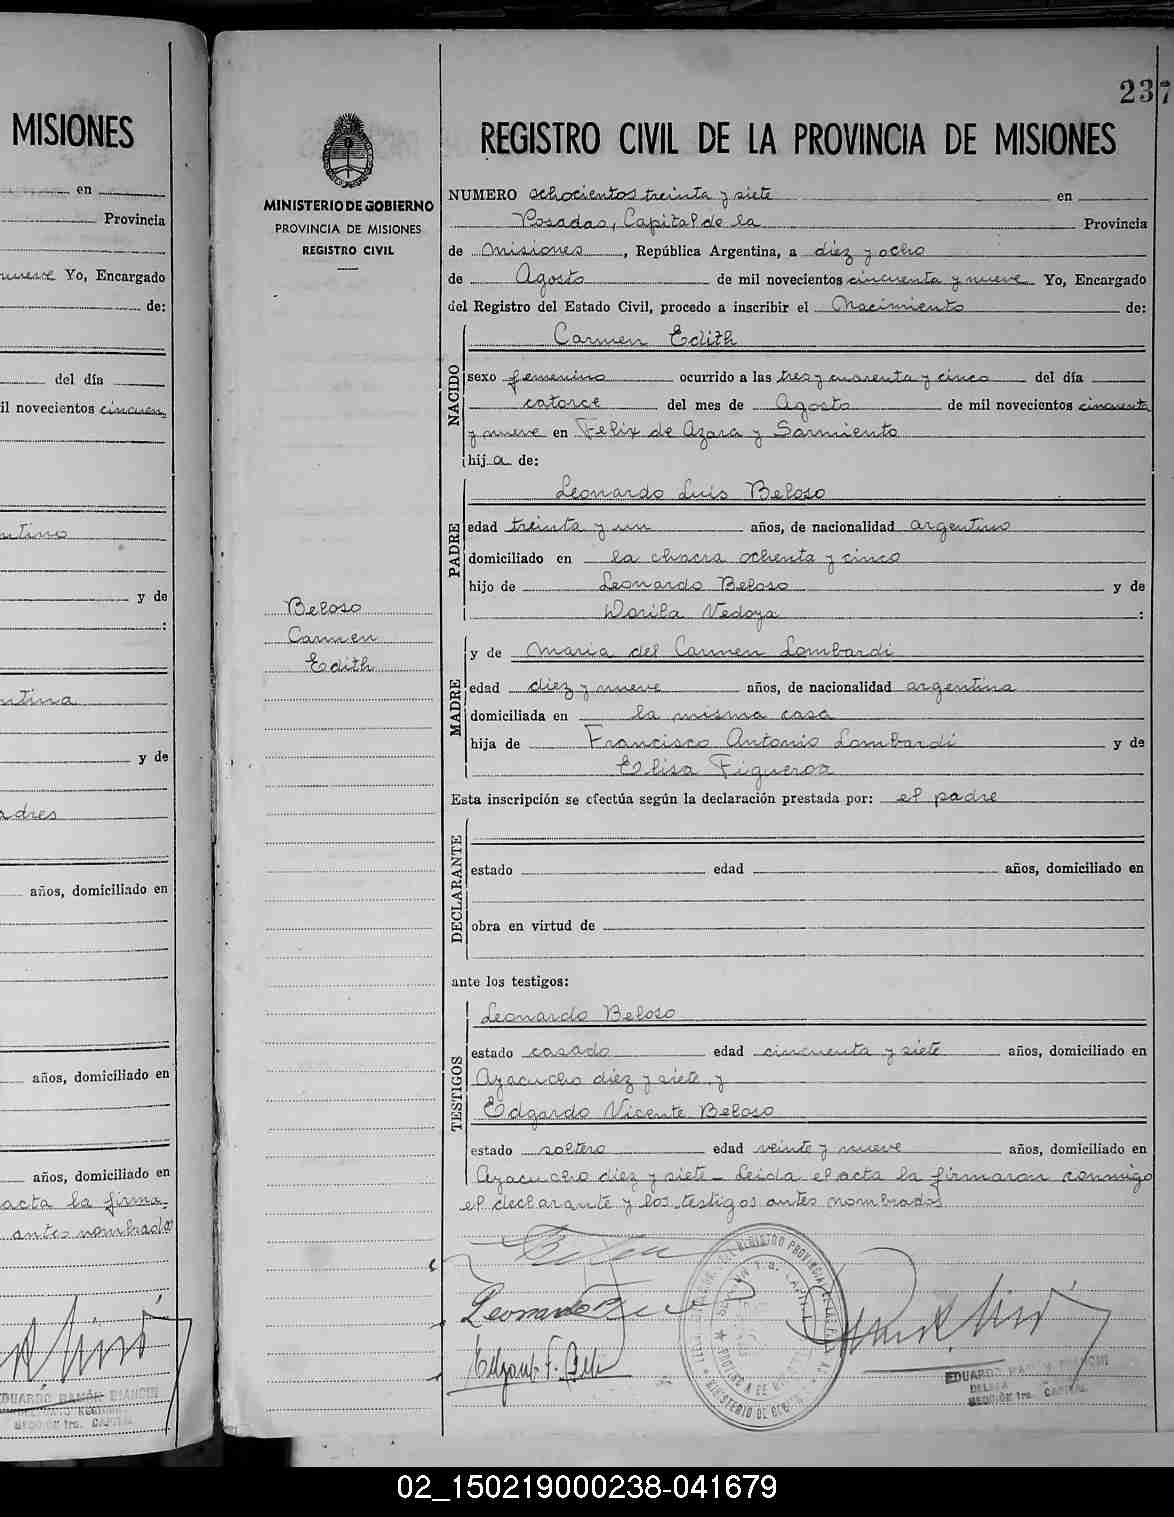 MISIONES
en
Provincia
nueve Yo, Encargado
de:
del día
il novecientos cincuen
ntino
y de
:
ntina
y de
adres
años, domiciliado en
años, domiciliado en
años, domiciliado en
acta la firma-
antes nombrados
EDUARDO RAMÓN BIANCHI
SECCIÓN 1ra. CAPITAL
237
MINISTERIO DE GOBIERNO
PROVINCIA DE MISIONES
REGISTRO CIVIL
Beloso
Carmen
Edith
REGISTRO CIVIL DE LA PROVINCIA DE MISIONES
NUMERO ochocientos treinta y siete en
Posadas, Capital de la Provincia
de Misiones, República Argentina, a diez y ocho
de Agosto de mil novecientos cincuenta y nueve Yo, Encargado
del Registro del Estado Civil, procedo a inscribir el Nacimiento de:
NACIDO
Carmen Edith
sexo femenino ocurrido a las tres y cuarenta y cinco del día
catorce del mes de Agosto de mil novecientos cincuenta
y nueve en Felix de Azara y Sarmiento
hija de:
PADRE
Leonardo Luis Beloso
edad treinta y un años, de nacionalidad argentino
domiciliado en la chacra ochenta y cinco
hijo de Leonardo Beloso y de
Dorila Vedoya :
MADRE
y de Maria del Carmen Lombardi
edad diez y nueve años, de nacionalidad argentina
domiciliada en la misma casa
hija de Francisco Antonio Lombardi y de
Elisa Figueroa
Esta inscripción se efectúa según la declaración prestada por: el padre
DECLARANTE
estado edad años, domiciliado en
obra en virtud de
ante los testigos:
TESTIGOS
Leonardo Beloso
estado casado edad cincuenta y siete años, domiciliado en
Ayacucho diez y siete y
Edgardo Vicente Beloso
estado soltero edad veinte y nueve años, domiciliado en
Ayacucho diez y siete - Leida el acta la firmaron conmigo
el declarante y los testigos antes nombrados
Leonardo
EDUARDO RAMÓN BIANCHI
SECCIÓN 1ra. CAPITAL
02_150219000238-041679